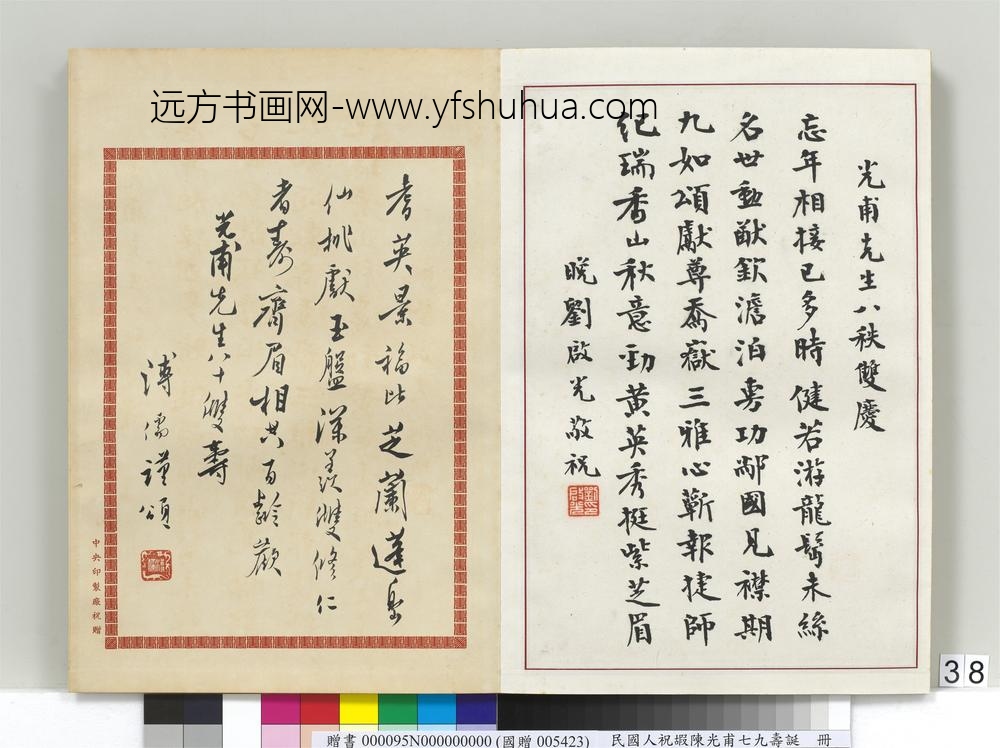 远方书画网-www.yfshuhua.com
光甫先生八秩雙慶
忘年相接已多時健若游龍鬢未絲
名世勳猷欽澹泊專功鄰國見襟期
九如頌獻尊喬嶽三雅心蘄報捷師
紀瑞香山秋意勁黃英秀挺紫芝眉
晚劉啟光敬祝
耆英景福比芝蘭蓬島
仙桃獻玉盤深羨雙修仁
者壽齊眉相共百齡歡
光甫先生八十雙壽
溥儒謹頌
中央印製廠祝贈
38
贈書 000095N000000000 (國贈 005423) 民國人祝嘏陳光甫七九壽誕 冊